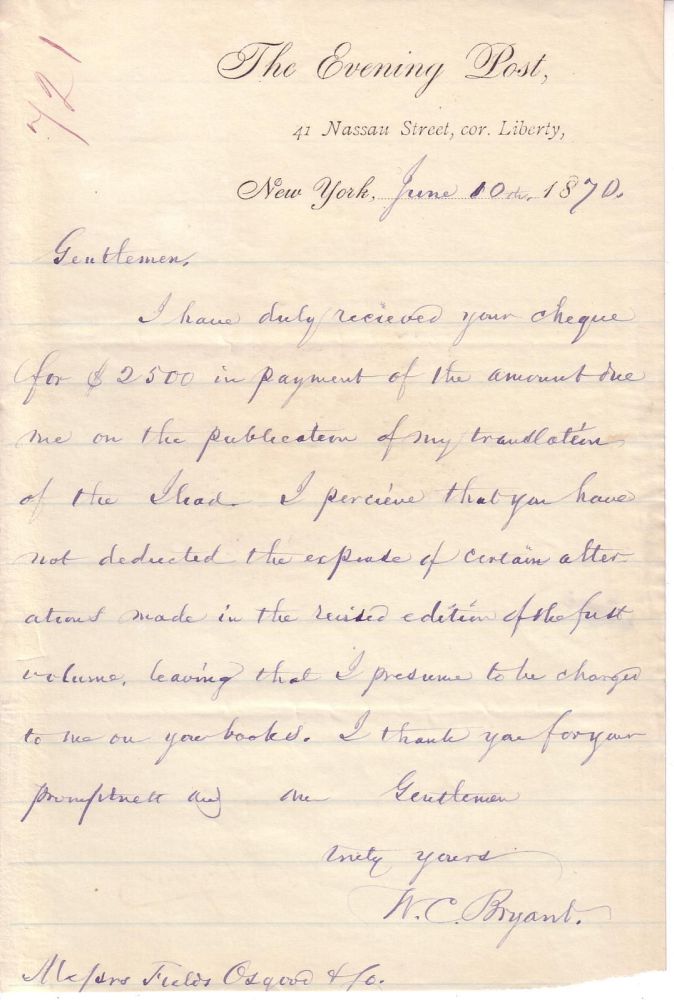 721
The Evening Post,
41 Nassau Street, cor. Liberty,
New York, June 10th. 1870.
Gentlemen.
I have duly recieved your cheque
for $2500 in payment of the amount due
me on the publication of my translation
of the Iliad. I percieve that you have
not deducted the expense of certain alter-
ations made in the revised edition of the first
volume, leaving that I presume to be charged
to me on your books. I thank you for your
promptness and am Gentlemen
truly yours
W. C. Bryant.
Messrs Fields Osgood & Co.